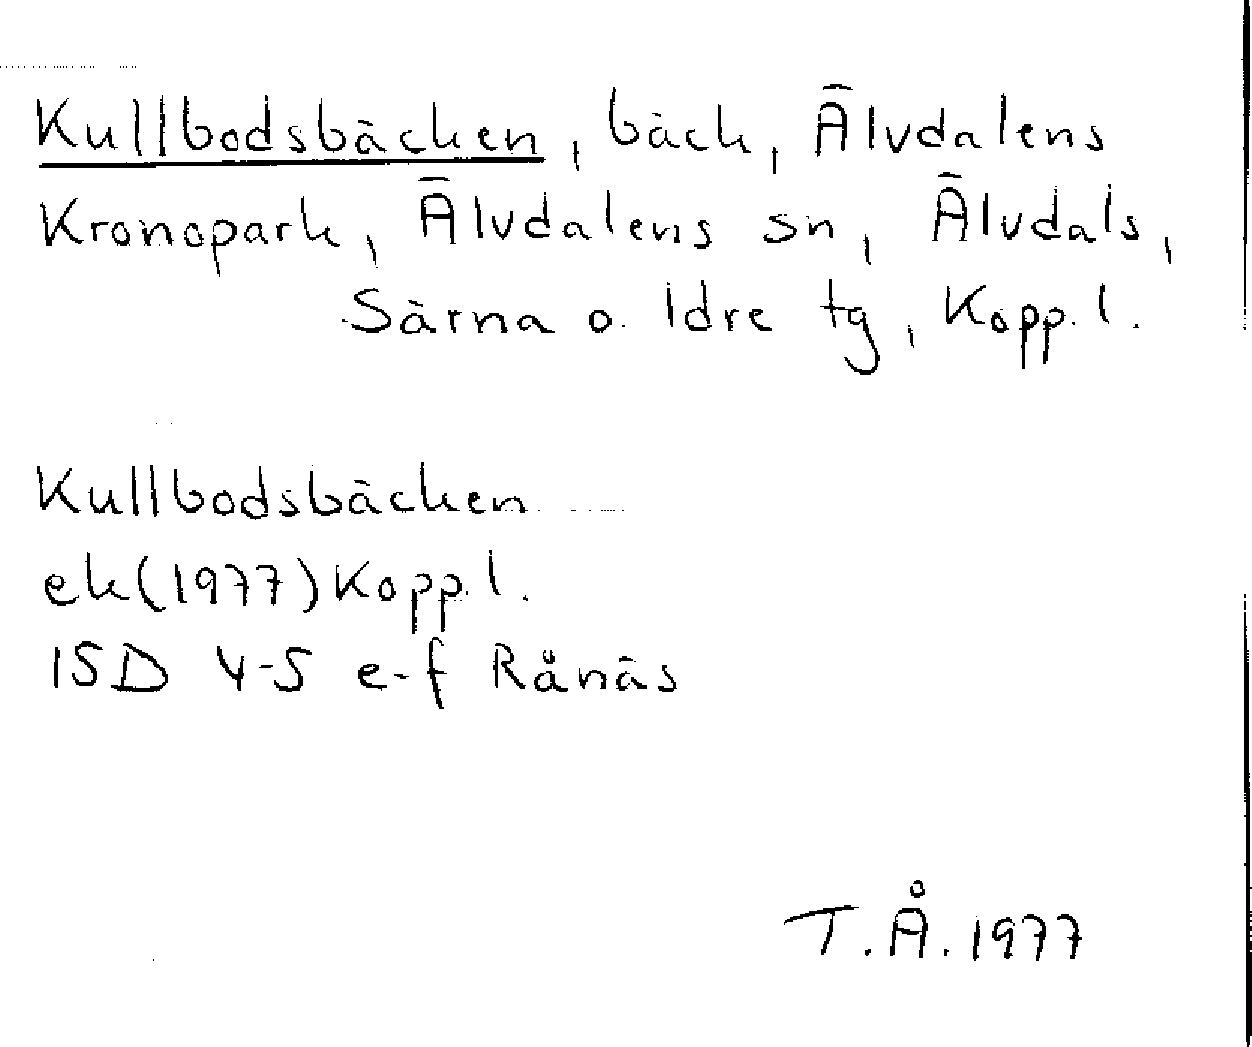 Kullbodsbäcken, bäck, Älvdalens
Kronopark, Älvdalens sn, Älvdals,
Särna o. Idre tg, Kopp. l.
Kullbodsbäcken
ek(1977) Kopp. l.
15D 4-5 e-f Rånäs
T.Å. 1977